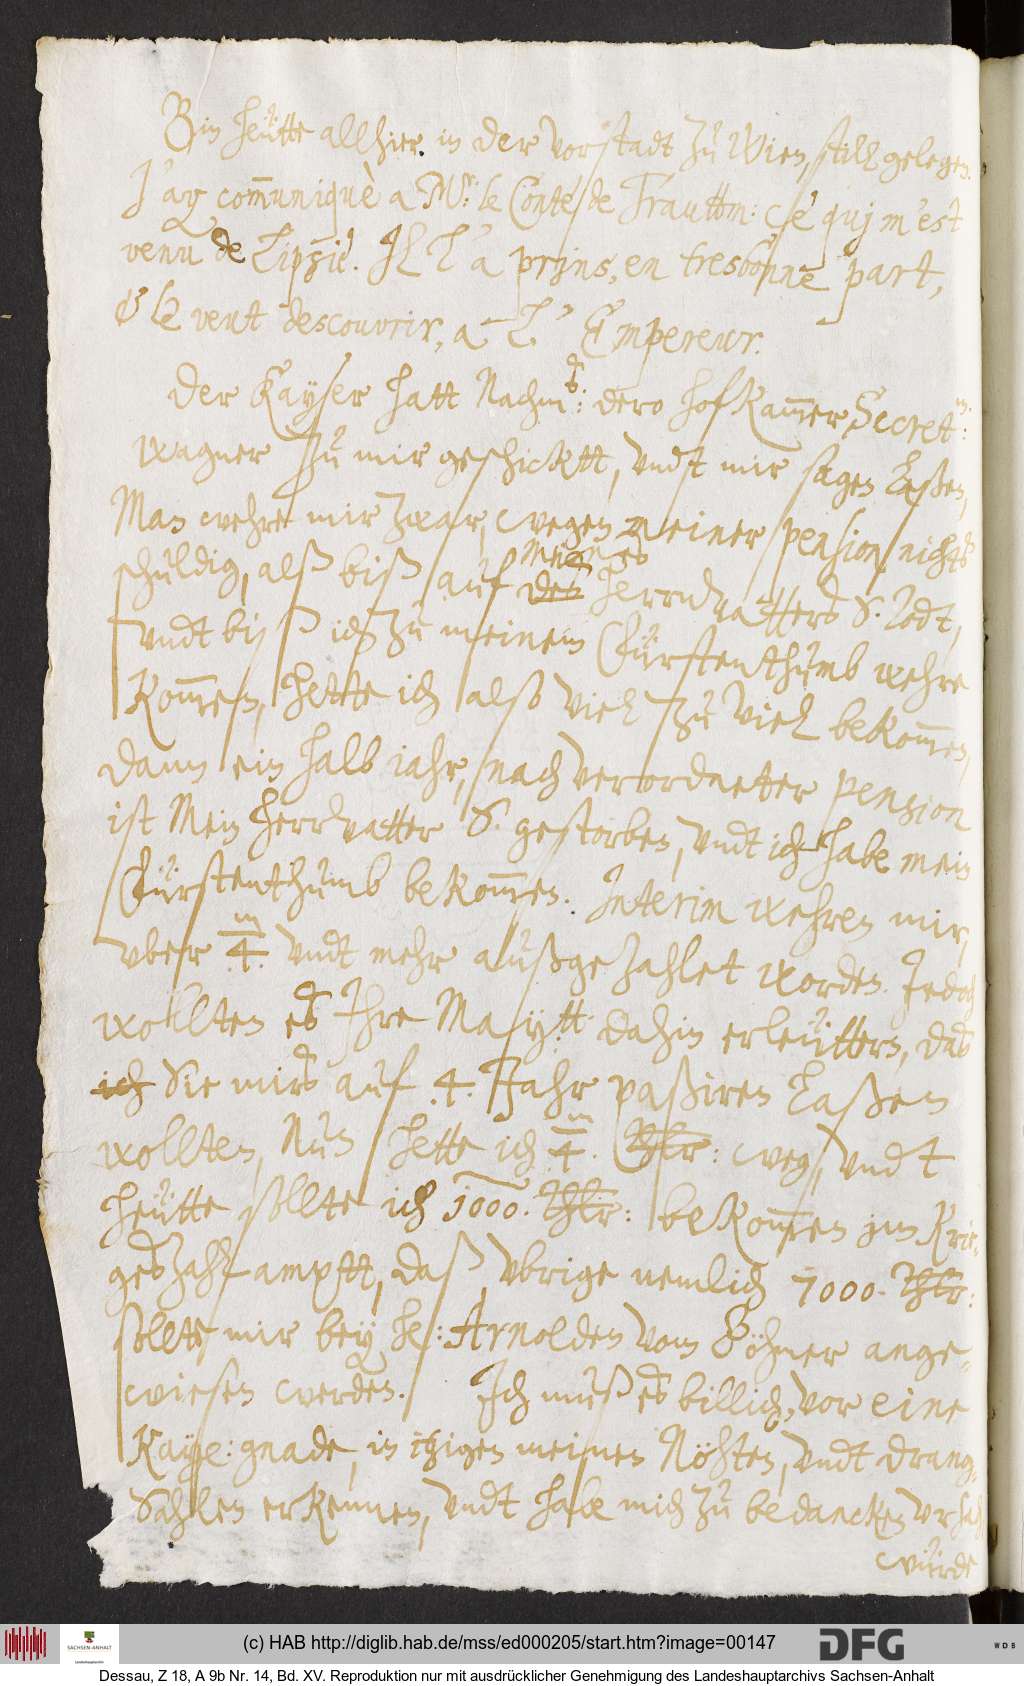 Bin heütte allhier in der vorstadt zu Wien, still gelegen.
J'ay com̅uniquè a Mr: le Conte de Trauttm: ce quj m'est
venu de Lipsie. Il l'a prins, en tresbonne part,
& le veut descouvrir, a l'Empereur.
Der Kayser hatt Nachmd: dero hofKam̅er Secretm:
Wagner zu mir geschicktt, undt mir sagen laßen,
Man wehre mir zwar, wegen meiner pension nichts
schuldig, alß biß auf des meines herrnvatters S. Todt,
undt biß ich zu meinem Fürstenthumb wehre
kom̅en, hette ich also viel zu viel bekom̅en,
dann ein halb iahr, nach verordneter pension
ist Mein herrvatter S. gestorben, undt ich habe mein
Fürstenthumb bekom̅en. Interim wehren mir,
uber 4m. undt mehr außgezahlet worden. Jedoch
wollten es Ihre Mayt: dahin erleüttern, das
ich Sie mirs auf 4. Jahr paßiren laßen
wollten, Nun hette ich 4m. Thlr: weg, undt
heütte sollte ich 1000. Thlr: bekom̅en im Krie-
geszahlampftt, daß ubrige nemlich 7000. Thlr:
sollte mir bey he: Arnolden vom Böhmer ange-
wiesen werden. Ich muß es billich, vor eine
Kaye: gnade, in itzigen meinen Nöhten, undt drang-
Sahlen erkennen, undt habe mich zu bedancken ursach
würde
(c) HAB http://diglib.hab.de/mss/ed000205/start.htm?image=00147
SACHSEN-ANHALT
DFG
WDB
Dessau, Z 18, A 9b Nr. 14, Bd. XV. Reproduktion nur mit ausdrücklicher Genehmigung des Landeshauptarchivs Sachsen-Anhalt